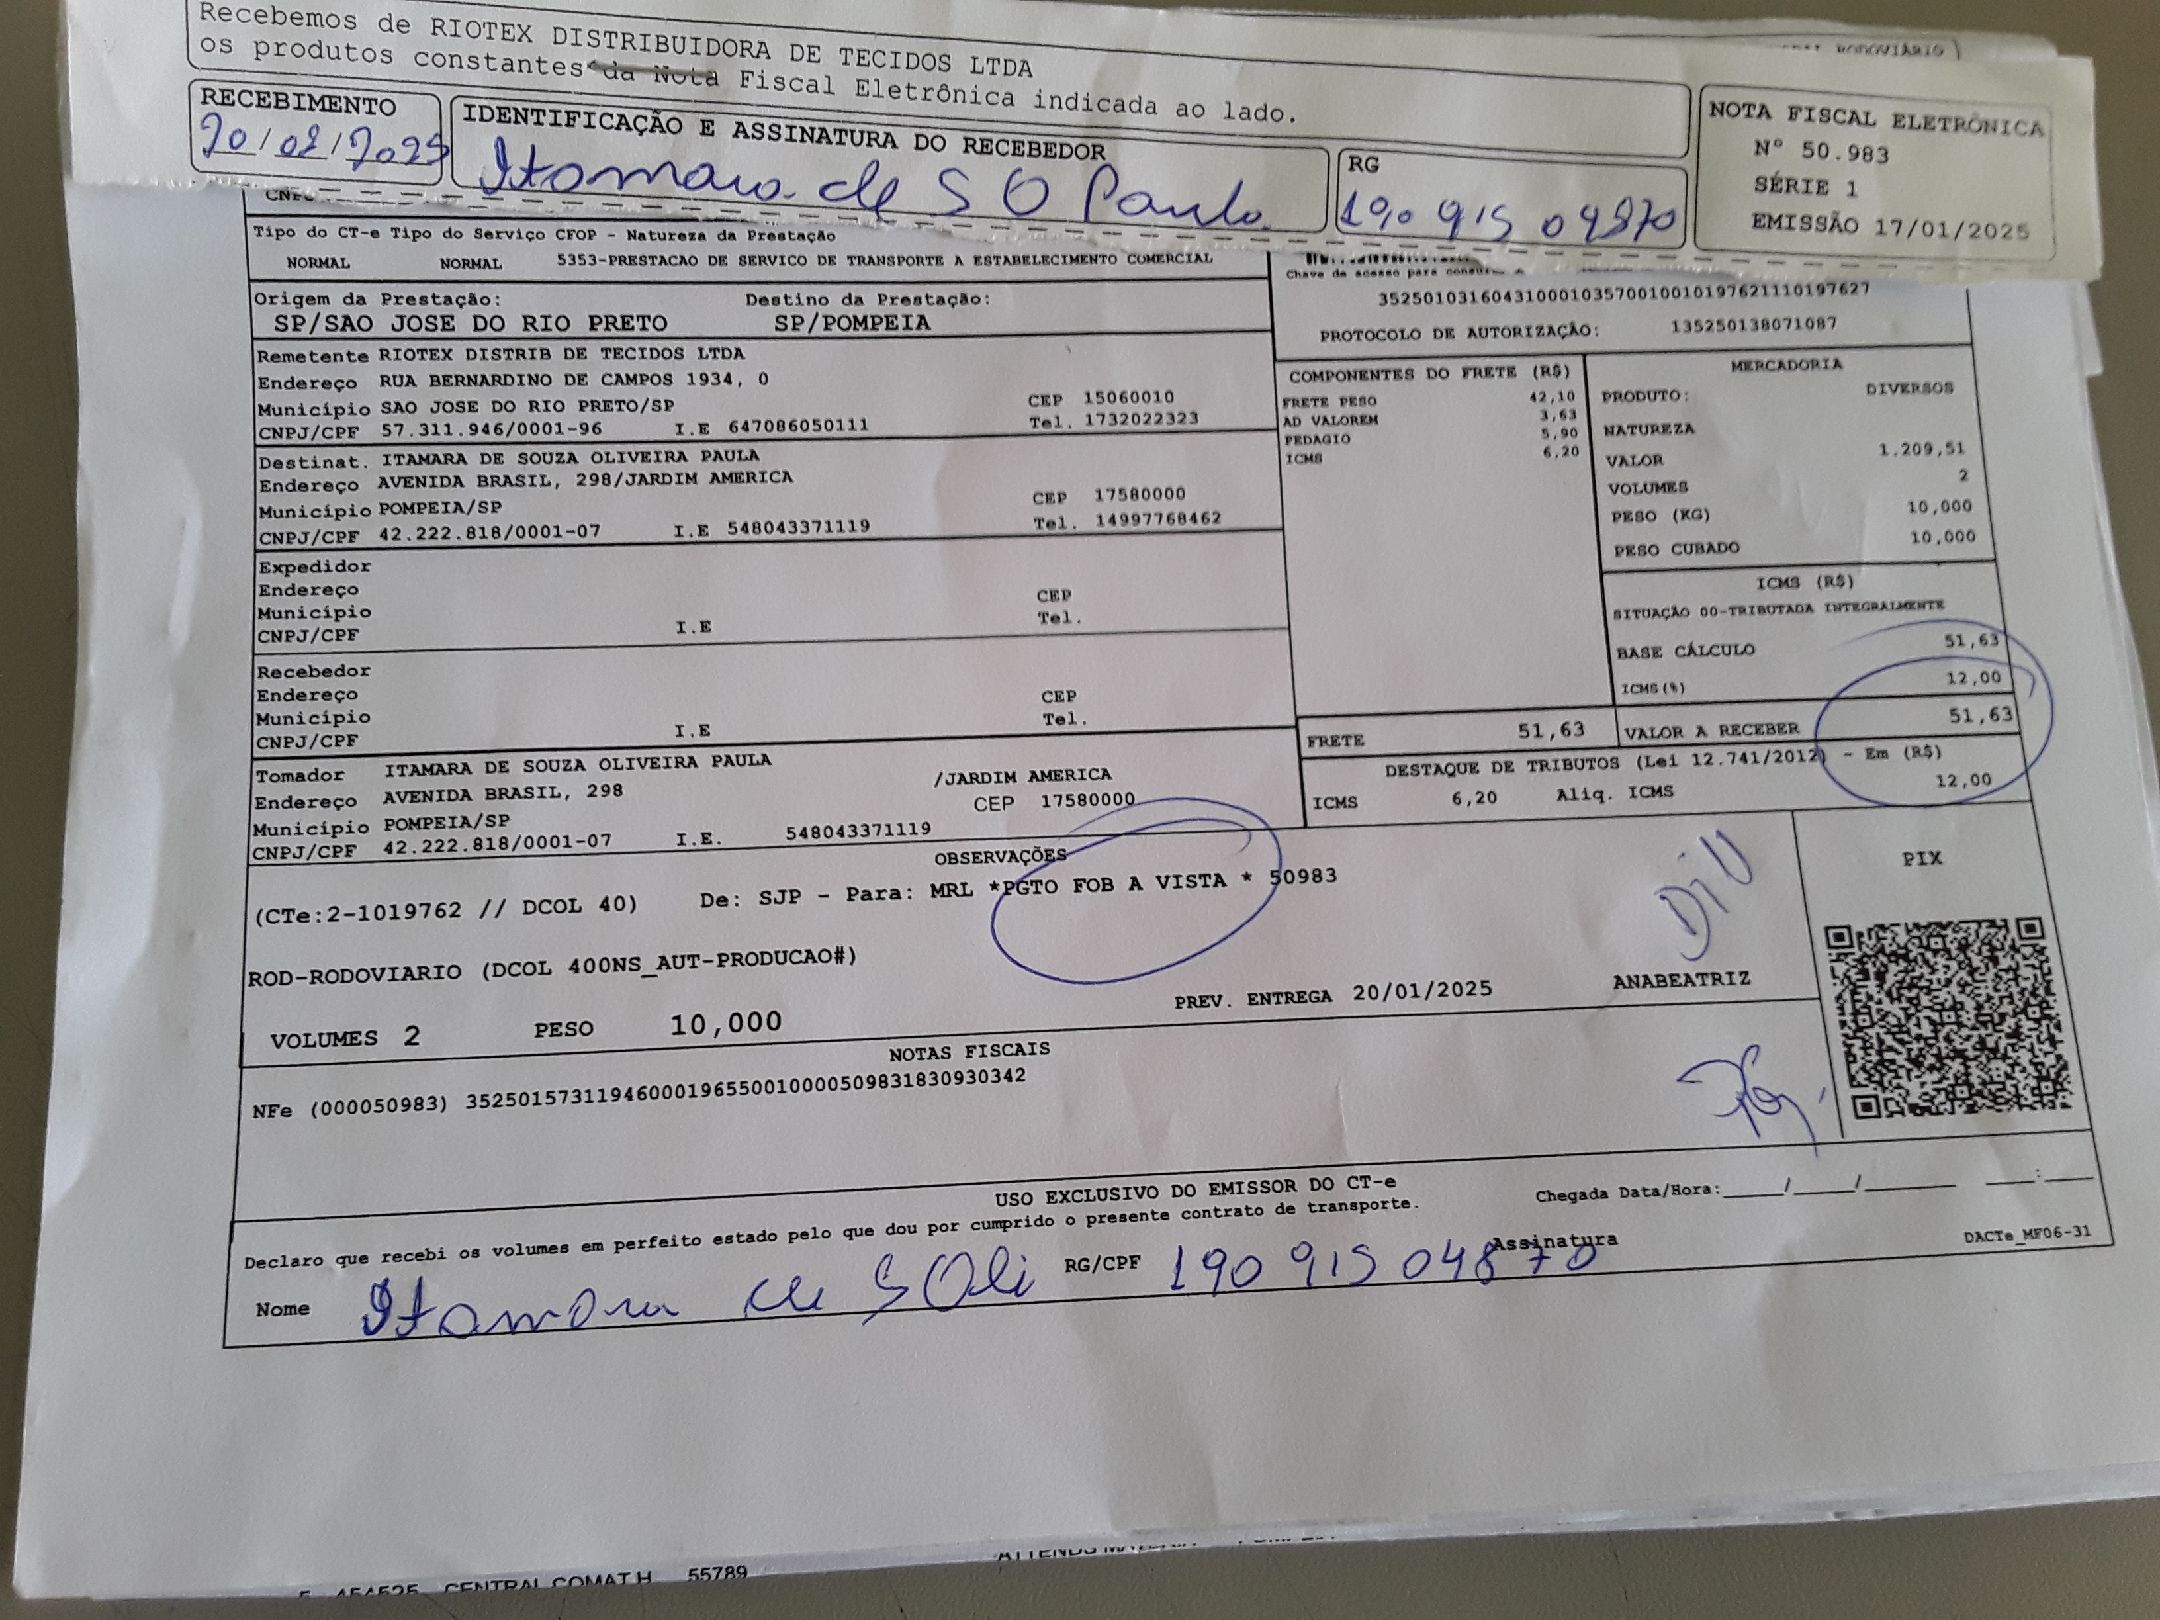 Recebemos de RIOTEX DISTRIBUIDORA DE TECIDOS LTDA
os produtos constantes da Nota Fiscal Eletrônica indicada ao lado.
RECEBIMENTO
IDENTIFICAÇÃO E ASSINATURA DO RECEBEDOR
RG
190 915 04870
NOTA FISCAL ELETRÔNICA
Nº 50.983
SÉRIE 1
EMISSÃO 17/01/2025
Tipo do CT-e Tipo do Serviço CFOP - Natureza da Prestação
NORMAL NORMAL 5353-PRESTACAO DE SERVICO DE TRANSPORTE A ESTABELECIMENTO COMERCIAL
Chave de acesso para
35250103160431000103570010010197621110197627
PROTOCOLO DE AUTORIZAÇÃO: 135250138071087
Origem da Prestação: Destino da Prestação:
SP/SAO JOSE DO RIO PRETO SP/POMPEIA
Remetente RIOTEX DISTRIB DE TECIDOS LTDA
Endereço RUA BERNARDINO DE CAMPOS 1934, 0
Município SAO JOSE DO RIO PRETO/SP CEP 15060010
CNPJ/CPF 57.311.946/0001-96 I.E 647086050111 Tel. 1732022323
Destinat. ITAMARA DE SOUZA OLIVEIRA PAULA
Endereço AVENIDA BRASIL, 298/JARDIM AMERICA
Município POMPEIA/SP CEP 17580000
CNPJ/CPF 42.222.818/0001-07 I.E 548043371119 Tel. 14997768462
Expedidor
Endereço
Município CEP
CNPJ/CPF I.E Tel.
Recebedor
Endereço
Município CEP
CNPJ/CPF I.E Tel.
Tomador ITAMARA DE SOUZA OLIVEIRA PAULA
Endereço AVENIDA BRASIL, 298 /JARDIM AMERICA
Município POMPEIA/SP CEP 17580000
CNPJ/CPF 42.222.818/0001-07 I.E. 548043371119
COMPONENTES DO FRETE (R$)
FRETE PESO 42,10
AD VALOREM 3,63
PEDAGIO 5,90
ICMS 6,20
MERCADORIA
PRODUTO: DIVERSOS
NATUREZA
VALOR 1.209,51
VOLUMES 2
PESO (KG) 10,000
PESO CUBADO 10,000
ICMS (R$)
SITUAÇÃO 00-TRIBUTADA INTEGRALMENTE
BASE CÁLCULO 51,63
ICMS(%) 12,00
FRETE 51,63 VALOR A RECEBER 51,63
DESTAQUE DE TRIBUTOS (Lei 12.741/2012) - Em (R$)
ICMS 6,20 Aliq. ICMS 12,00
OBSERVAÇÕES
(CTe:2-1019762 // DCOL 40) De: SJP - Para: MRL *PGTO FOB A VISTA * 50983
ROD-RODOVIARIO (DCOL 400NS_AUT-PRODUCAO#)
VOLUMES 2 PESO 10,000 PREV. ENTREGA 20/01/2025 ANABEATRIZ
PIX
NOTAS FISCAIS
NFe (000050983) 35250157311946000196550010000509831830930342
USO EXCLUSIVO DO EMISSOR DO CT-e
Declaro que recebi os volumes em perfeito estado pelo que dou por cumprido o presente contrato de transporte.
Chegada Data/Hora:____/____/______ ___:___
Nome Itamara de S Oli RG/CPF 190 915 04870 Assinatura
DACTe_MF06-31
CENTRAL COMAT.H 55789